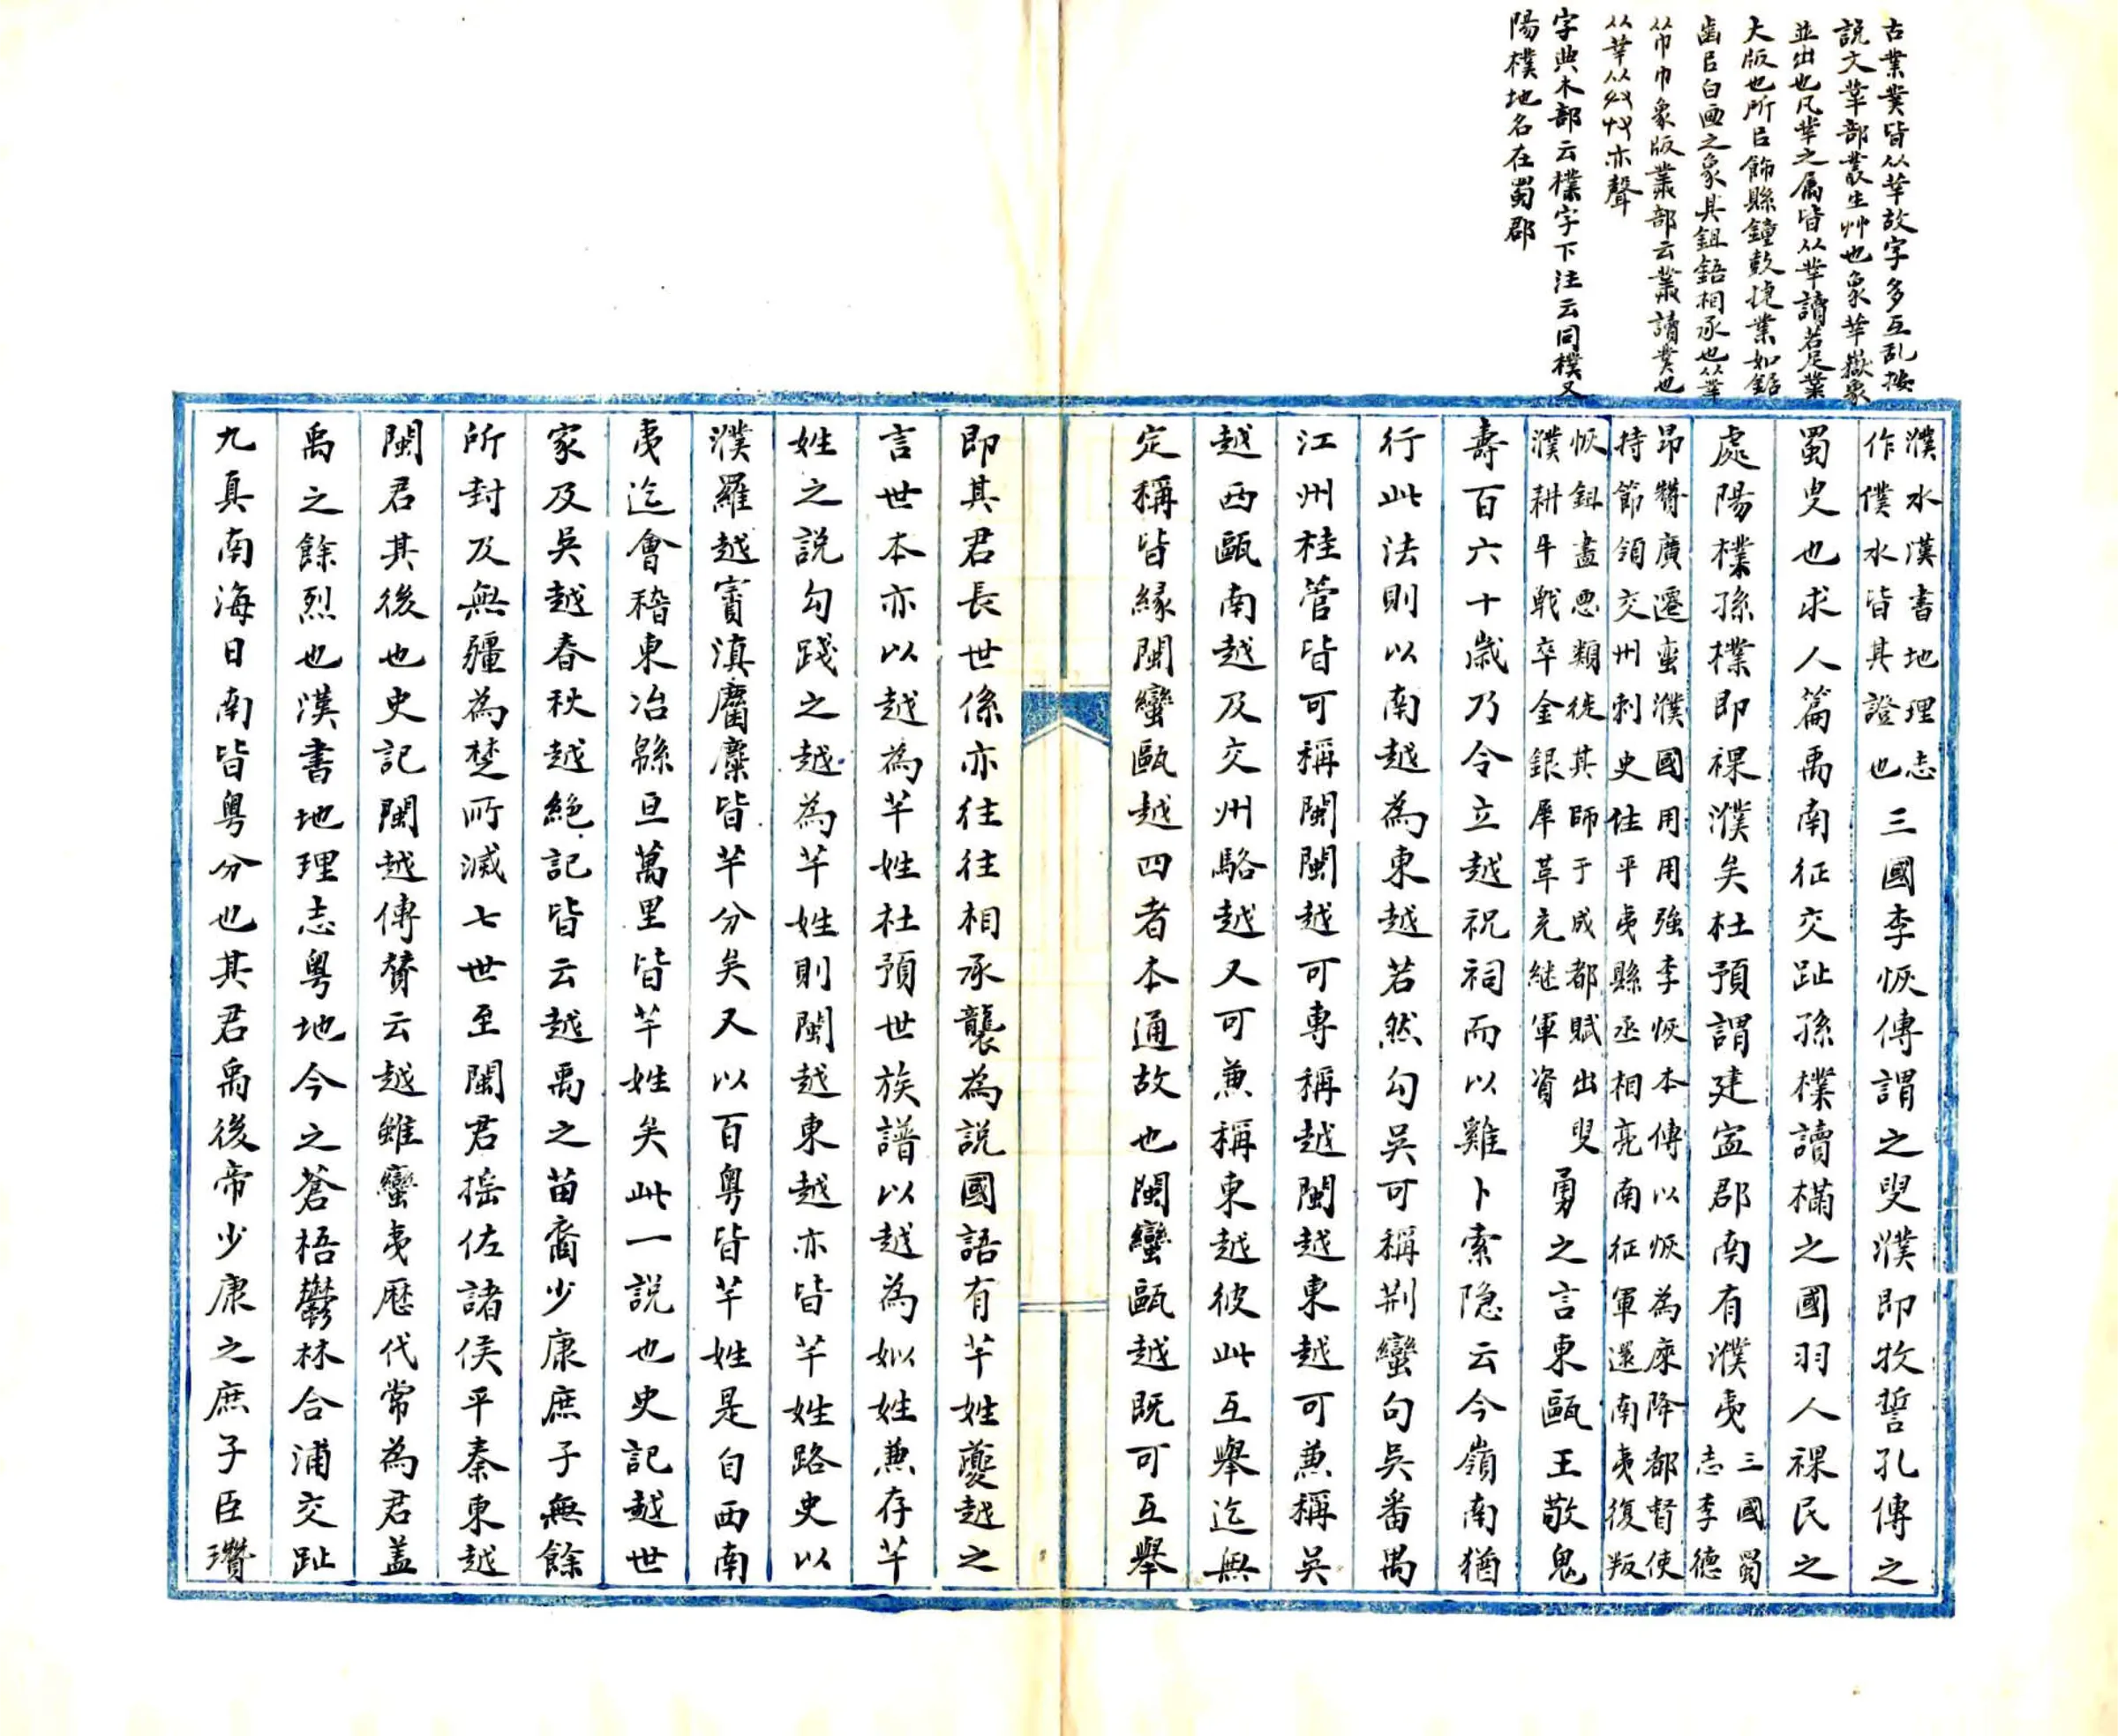 古業業皆从丵故字多互乱按
説文丵部叢生艸也象丵嶽象
並出也凡丵之屬皆从丵讀若浞業
大版也所㠯飾縣鐘鼓捷業如鋸
齒㠯白画之象其鉏鋙相承也从丵
从巾巾象版業部云菐讀菐也
从丵从廾廾亦聲
字典木部云檏字下注云同樸又
陽樸地名在蜀郡
濮水漢書地理志
作僕水皆其證也
三國李恢傳謂之叟濮即牧誓孔傳之
蜀叟也求人篇禹南征交趾孫檏讀樠之國羽人裸民之
處陽檏孫檏即裸濮矣杜預謂建寍郡南有濮夷
三國蜀
志李德
昂贊廣遷蛮濮國用用強李恢本傳以恢為庲降都督使
持節領交州刺史住平夷縣丞相亮南征軍還南夷復叛
恢鉏盡悪類徙其師于成都賦出叟
濮耕牛戰卒金銀犀革充継軍資
勇之言東甌王敬鬼
壽百六十歲乃令立越祝祠而以雞卜索隐云今嶺南猶
行此法則以南越為東越若然勾吳可稱荆蠻句吳番禺
江州桂管皆可稱閩閩越可專稱越閩越東越可兼稱吳
越西甌南越及交州駱越又可兼稱東越彼此互舉迄無
定稱皆緣閩蠻甌越四者本通故也閩蠻甌越既可互舉
即其君長世係亦往往相承襲為説國語有芊姓夔越之
言世本亦以越為芊姓杜預世族譜以越為姒姓兼存芊
姓之説勾踐之越為芊姓則閩越東越亦皆芊姓路史以
濮羅越賨滇麕麋皆芊分矣又以百粤皆芊姓是自西南
夷迄會稽東冶緜亘萬里皆芊姓矣此一説也史記越世
家及吳越春秋越絶記皆云越禹之苗裔少康庶子無餘
所封及無彊為楚所滅七世至閩君搖佐諸侯平秦東越
閩君其後也史記閩越傳賛云越雖蠻夷歴代常為君盖
禹之餘烈也漢書地理志粤地今之蒼梧鬱林合浦交趾
九真南海日南皆粤分也其君禹後帝少康之庶子臣瓚